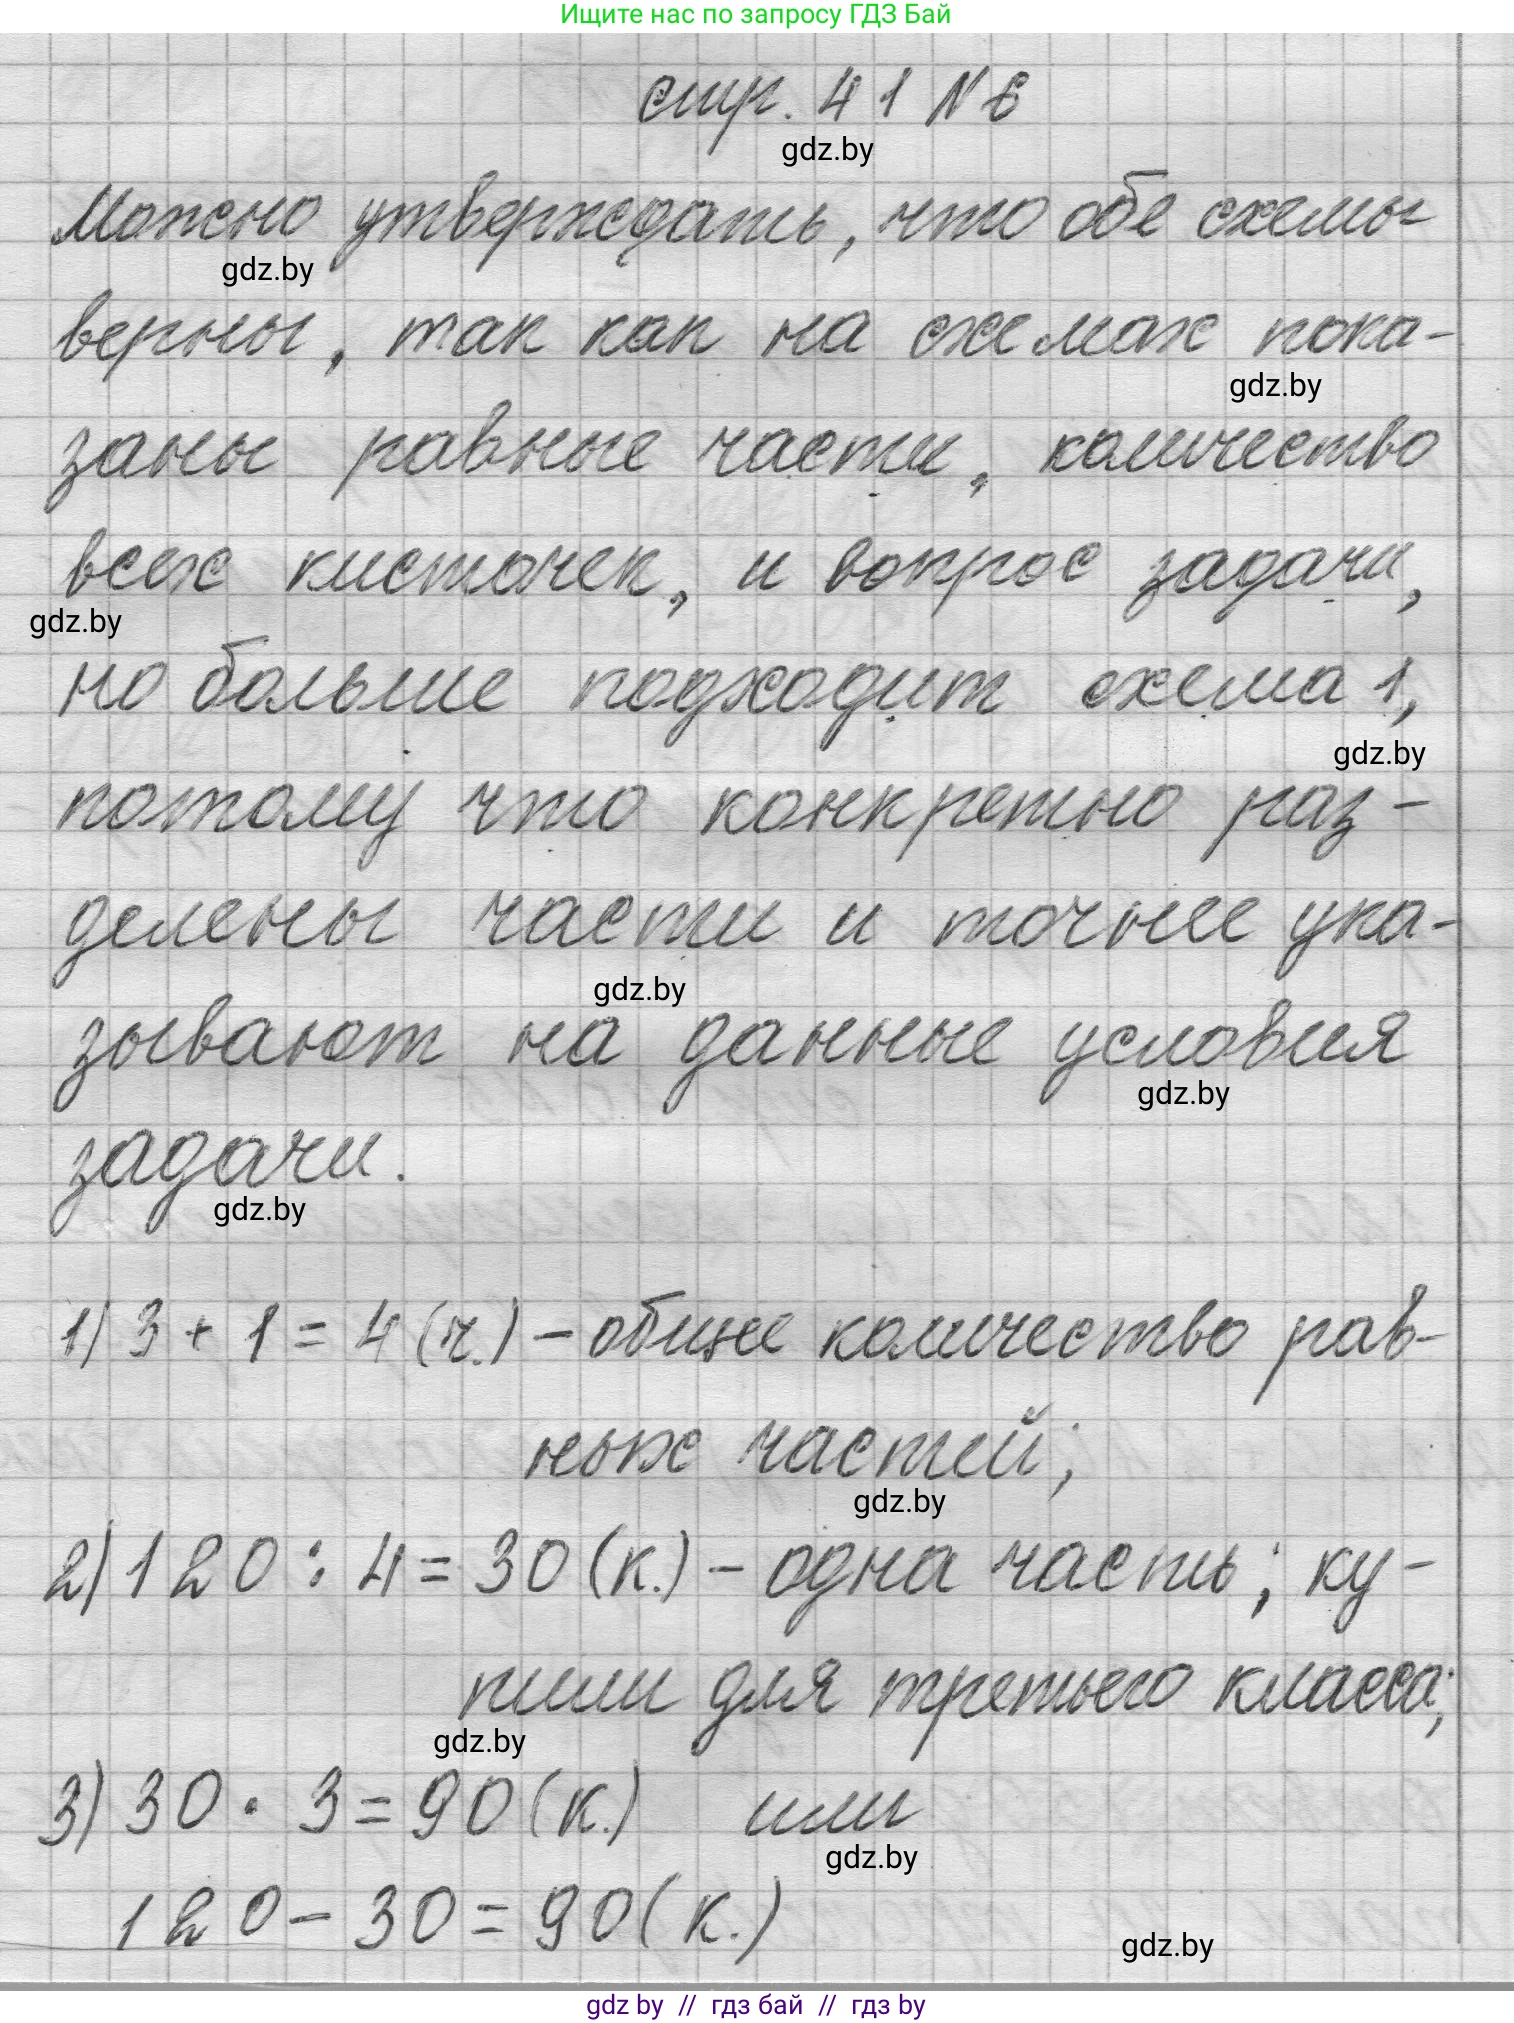 Ищите нас по запросу ГДЗ Бай
стр. 41 N 6
gdz.by
Можно утверждать, что обе схемы
gdz.by
верны, так как на схемах пока-
gdz.by
заны равные части, количество
всех кисточек, и вопрос задачи,
gdz.by
но больше подходит схема 1,
gdz.by
потому что конкретно раз-
делены части и точнее ука-
gdz.by
зывают на данные условия
gdz.by
задачи.
gdz.by
1) 3 + 1 = 4 (ч.) - общее количество рав-
ных частей;
gdz.by
2) 120 : 4 = 30 (к.) - одна часть; ку-
пили для третьего класса;
gdz.by
3) 30 · 3 = 90 (к.) или
gdz.by
120 - 30 = 90 (к.)
gdz.by
gdz by // гдз бай // гдз by